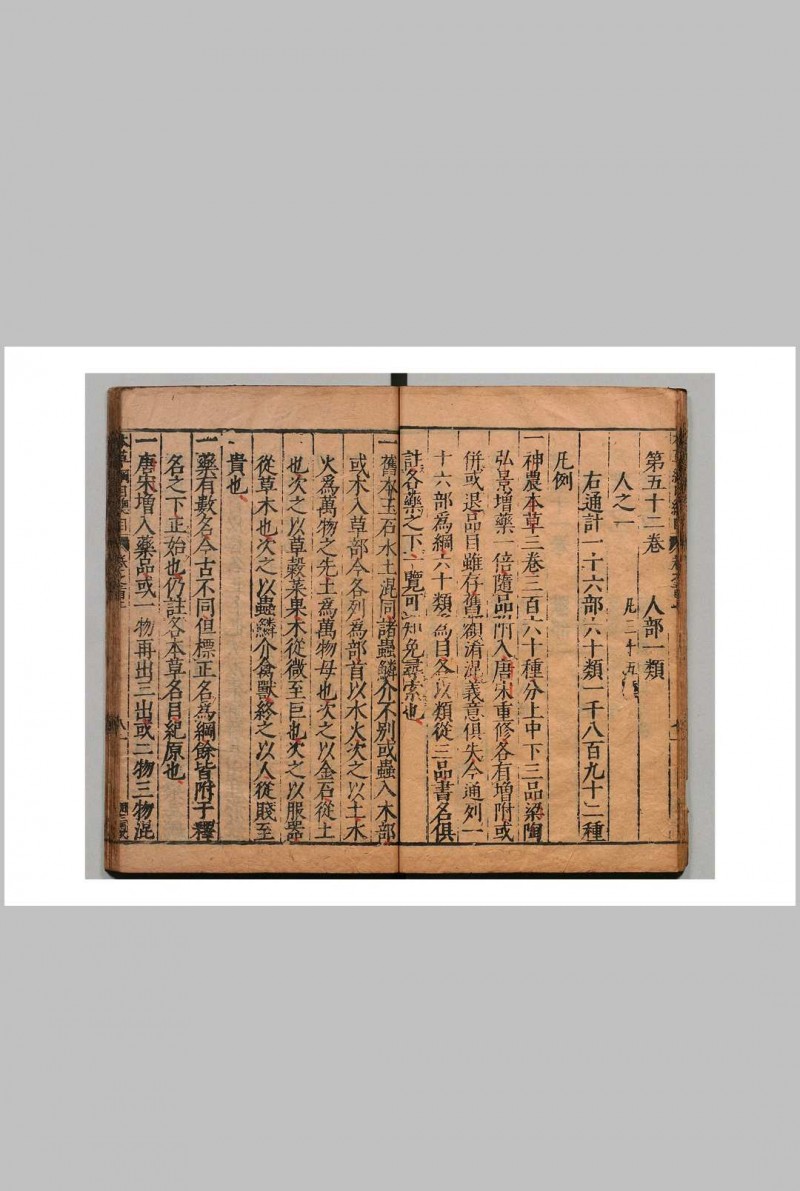 第五十二卷 人部一類
人之一 凡三十五種
右通計一十六部六十類一千八百九十二種
凡例
一神農本草三卷三百六十種分上中下三品梁陶
弘景增藥一倍隨品附入唐宋重修各有增附或
併或退品目雖存舊額淆混義意俱失今通列一
十六部為綱六十類為目各以類從三品書名俱
註各藥之下一覽可知免尋索也
一舊本玉石水土混同諸蟲鱗介不別或蟲入木部
或木入草部今各列為部首以水火次之以土水
火為萬物之先土為萬物母也次之以金石從土
也次之以草穀菜果木從微至巨也次之以服器
從草木也次之以蟲鱗介禽獸終之以人從賤至
貴也
一藥有數名今古不同但標正名為綱餘皆附于釋
名之下正始也仍註各本草名目紀原也
一唐宋增入藥品或一物再出三出或二物三物混
本草綱目總目